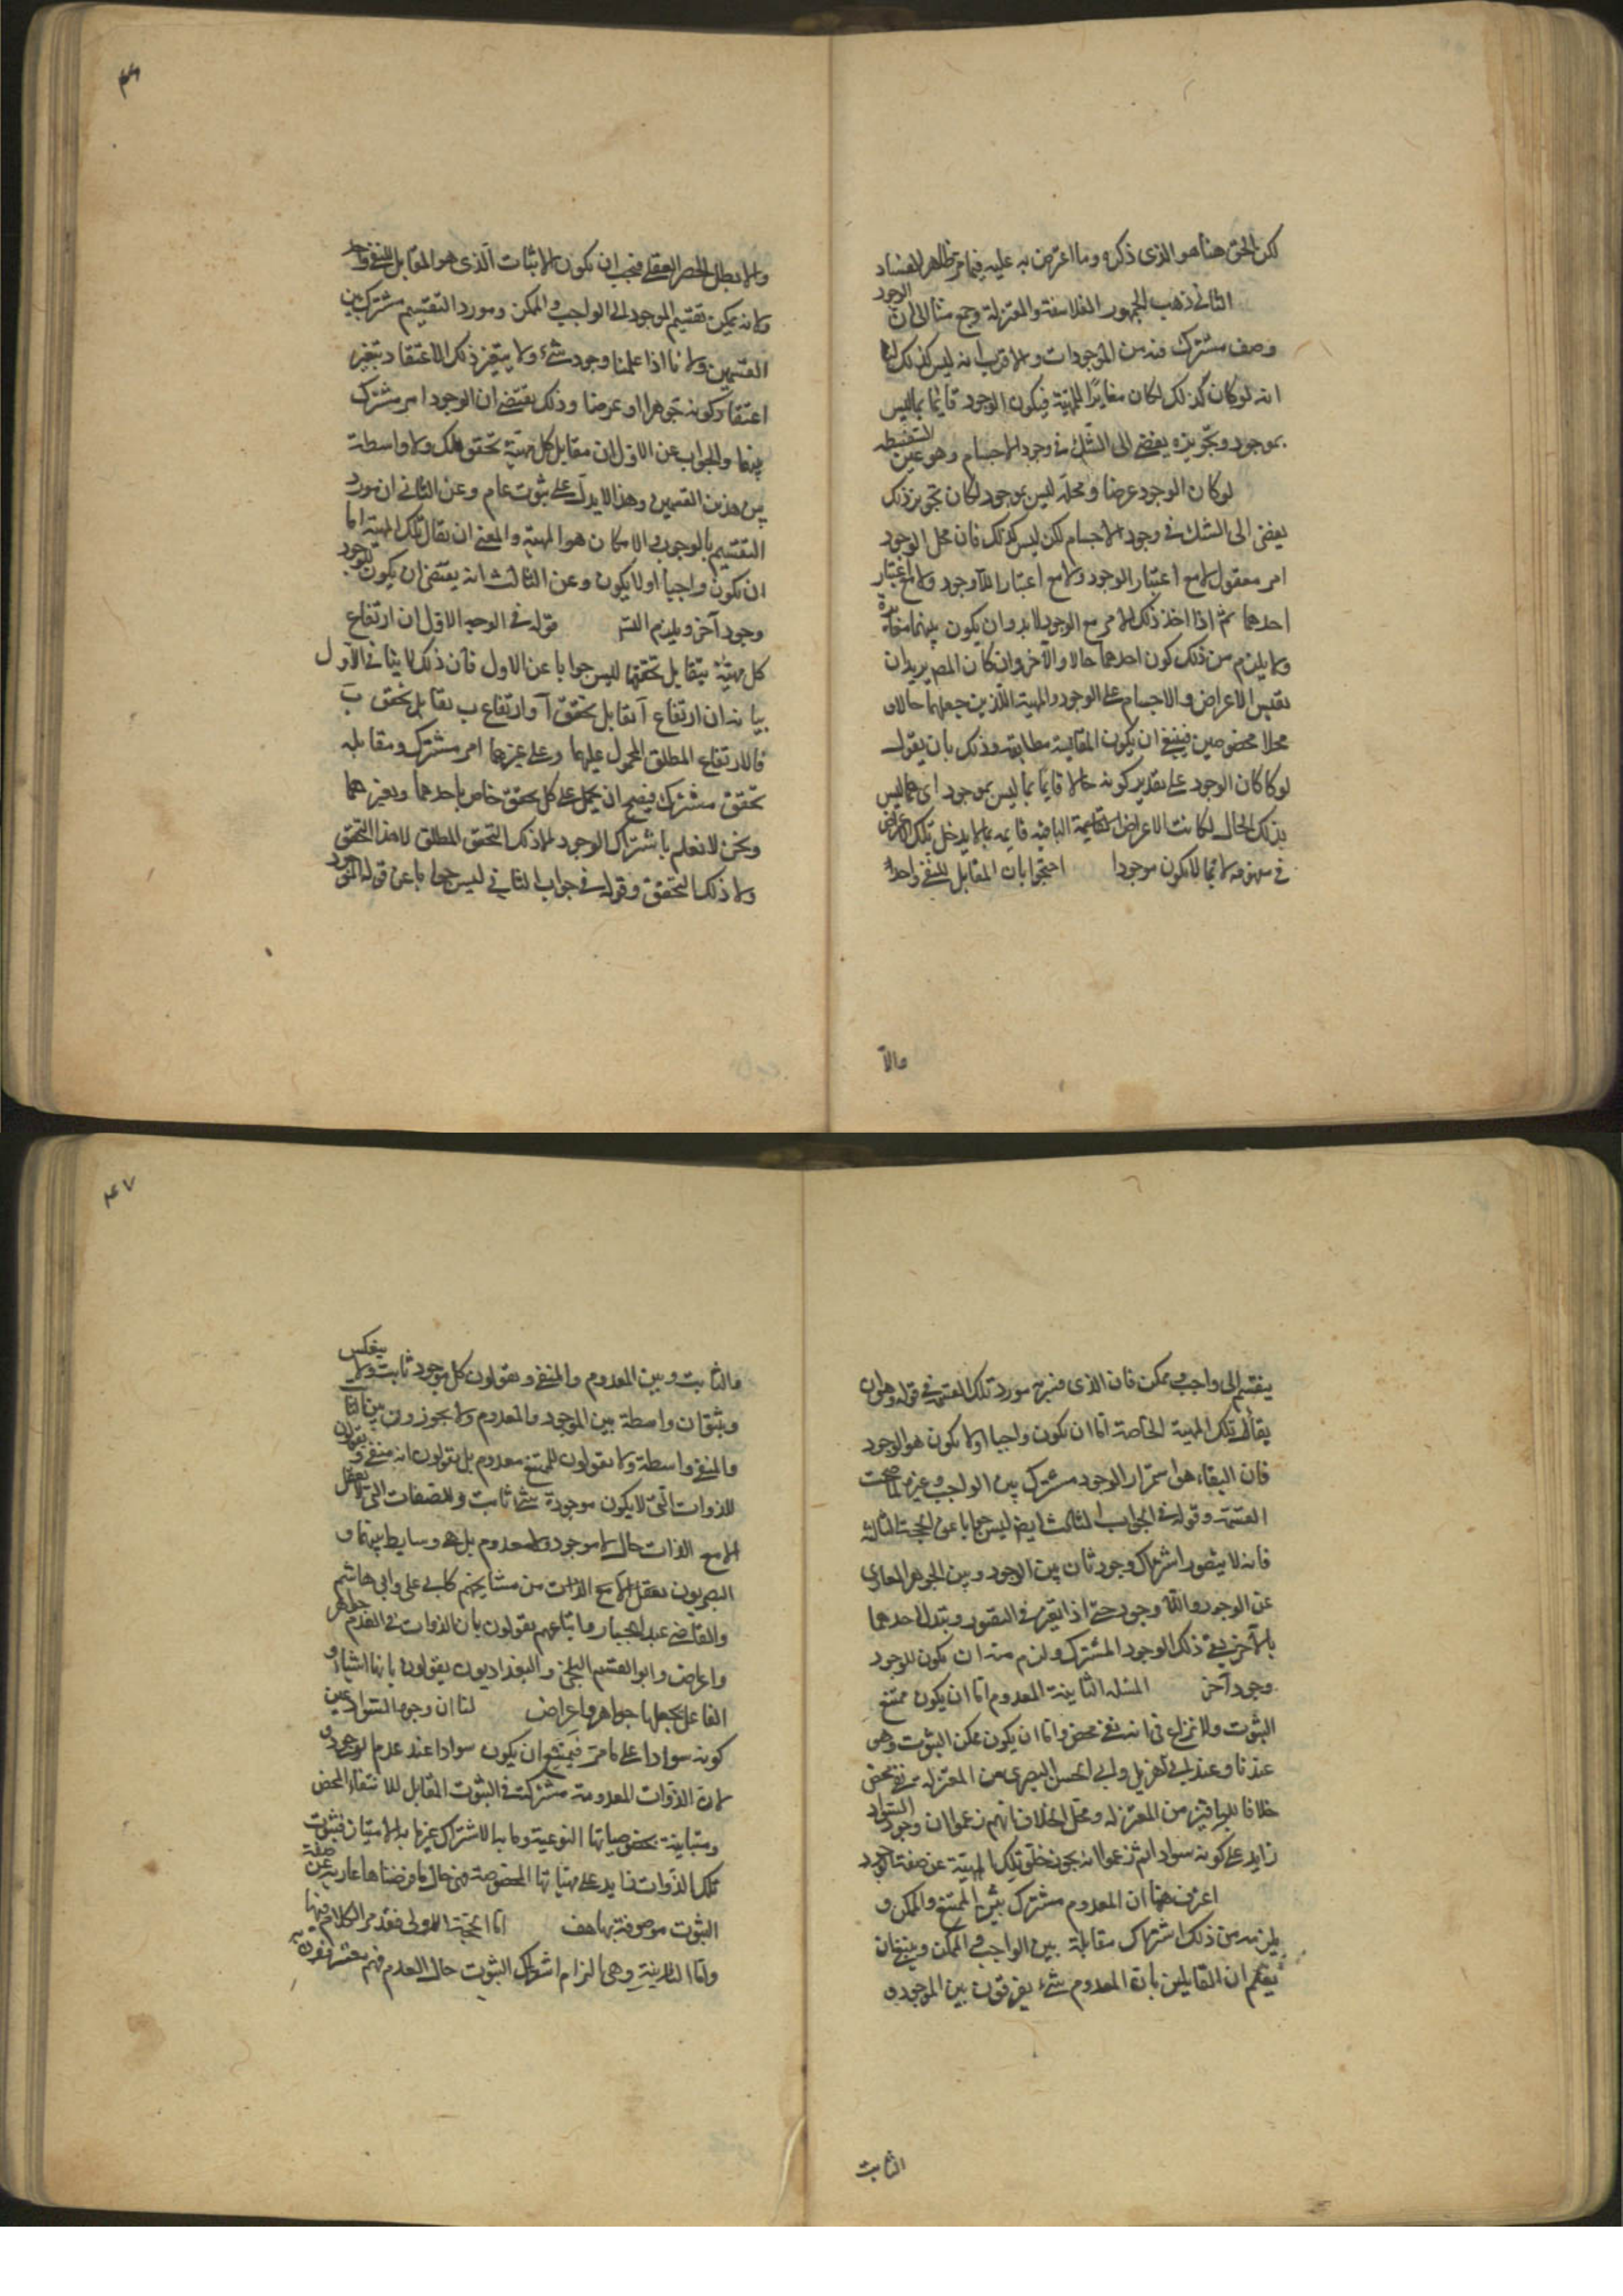 لكن الحق هنا هو الذى ذكره وما اعترض به عليه فيما مر ظاهر الفساد
الثانى ذهب الجمهور الفلاسفة والمعتزلة وجمع منا الى ان الوجود
وصف مشترك فيه بين الموجودات والاقرب انه ليس كذلك لنا
انه لو كان كذلك لكان مغايرًا للمهية فيكون الوجود قايمًا بما ليس
بموجود وتجويزه يفضى الى الشك فى وجود الاجسام وهو عين السفسطه
لو كان الوجود عرضا ومحله ليس بموجود لكان تجويز ذلك
يفضى الى الشك فى وجود الاجسام لكن ليس كذلك فان محل الوجود
امر معقول لا مع اعتبار الوجود ولا مع اعتبار اللاوجود ولا مع اعتبار
احدهما ثم اذا اخذ ذلك الامر مع الوجود لا بد وان يكون بينهما مغايرة
ولا يلزم من ذلك كون احدهما حالا والآخر وان كان المص يريد ان
يقيس الاعراض والاجسام على الوجود والمهية اللذين جعلهما حالا و
محلا مخصوصين فينبغى ان يكون المقايسة مطابقة وذلك بان يقول
لو كان الوجود على تقدير كونه حالا قايمًا بما ليس بموجود اى بما ليس
بذلك الحال لكانت الاعراض القايمة قايمه بما لا يدخل تلك الاعراض
فى مفهومه لا بما لا يكون موجودا احتجوا بان المقابل للنفى واحد
والا
۴۶
والا بطل الحصر العقلى فيجب ان يكون الاثبات الذى هو المقابل للنفى واحد
ولانه يمكن تقسيم الموجود الى الواجب والممكن ومورد التقسيم مشترك بين
القسمين ولانا اذا علمنا وجود شئ ولا يتغير ذلك الاعتقاد بتغير
اعتقاد كونه جوهرا او عرضا وذلك يقتضى ان الوجود امر مشترك
بينهما والجواب عن الاول ان مقابل كل مهية تحقق تلك ولا واسطة
بين هذين القسمين وهذا لا يدل على ثبوت عام وعن الثانى ان مورد
التقسيم بالوجوب والامكان هو المهية والمعنى ان يقال تلك المهية اما
ان تكون واجبا او لا يكون وعن الثالث انه يقتضى ان يكون للوجود
وجود آخر ويلزم التسـ قوله فى الوجه الاول ان ارتفاع
كل مهية يقابل تحققها ليس جوابا عن الاول فان ذلك لا ينافى الاول
بيانه ان ارتفاع آ يقابل تحقق آ وارتفاع ب يقابل تحقق ب
فالارتفاع المطلق المحمول عليهما وعلى غيرهما امر مشترك ومقابله
تحقق مشترك فيصح ان يحمل على كل تحقق خاص باحدهما وبغيرهما
ونحن لا نعلم باشتراك الوجود الا ذلك التحقق المطلق لا هذا التحقق
ولا ذلك التحقق وقوله فى جواب الثانى ليس جوابا عن قوله الموجود
ينقسم الى واجب وممكن فان الذى فسر به مورد تلك القسمة فى قوله وهو ان
يقال تلك المهية الخاصة اما ان تكون واجبا او لا يكون هو الوجود
فان البقاء هو استمرار الوجود مشترك بين الواجب وغيره لما صحت
القسمة وقوله فى الجواب الثالث ايضا ليس جوابا عن الحجة الثالثة
فانه لا يتصور اشتراك وجود ثان بين الوجود وبين الجوهر العارى
عن الوجود واللا وجود حتى اذا تغير فى التصور وتبدل احدهما
بالآخر بقى ذلك الوجود المشترك ولزم منه ان يكون للوجود
وجود آخر المسئلة الثانية المعدوم اما ان يكون ممتنع
الثبوت ولا نزاع فى انه نفى محض واما ان يكون ممكن الثبوت وهى
عندنا وعند ابى الهزيل وابى الحسين البصرى من المعتزلة نفى محض
خلافا للباقين من المعتزله ومحل الخلاف انهم زعموا ان وجود السواد
زايد على كونه سوادا ثم زعموا انه يجوز خلو تلك المهية عن صفة الوجود
اعترف هنا ان المعدوم مشترك بين الممتنع والممكن و
يلزمه من ذلك اشتراك مقابلة بين الواجب والممكن وينبغى ان
يعلم ان القايلين بان المعدوم شئ يفرقون بين الموجود و
الثابت
۴۷
والثابت وبين المعدوم والمنفى ويقولون كل موجود ثابت ولا ينعكس
ويثبتون واسطة بين الموجود والمعدوم ولا يجوزون بين الثابت
والمنفى واسطة ولا يقولون للممتنع معدوم بل يقولون انه منفى ويقولون
للذوات التى لا يكون موجودة شئ ثابت وللصفات التى لا يعقل
الا مع الذات حال لا موجود ولا معدوم بل هى وسايط بينهما و
البصريون من مشايخهم كابى على وابى هاشم
والقاضى عبد الجبار واتباعهم يقولون بان الذوات فى العدم جواهر
واعراض وابو القسم البلخى والبغداديون يقولون بانها اشياء و
الفاعل يجعلها جواهر واعراض لنا ان وجود السواد عين
كونه سوادا على ما مر فيمتنع ان يكون سوادا عند عدم الوجود و
لان الذوات المعدومة مشتركة فى الثبوت المقابل للانتفاء المحض
ومتباينة بخصوصياتها النوعية وما به الاشتراك غير ما به الامتياز فثبوت
تلك الذوات زايد على مهياتها المخصوصة فهى حال ما فرضناها عارية عن صفة
الثبوت موصوفة بها هف اما الحجة الاولى فقد مر الكلام فيها
واما الثانية وهى الزام اشتراك الثبوت حال العدم فهم معترفون به